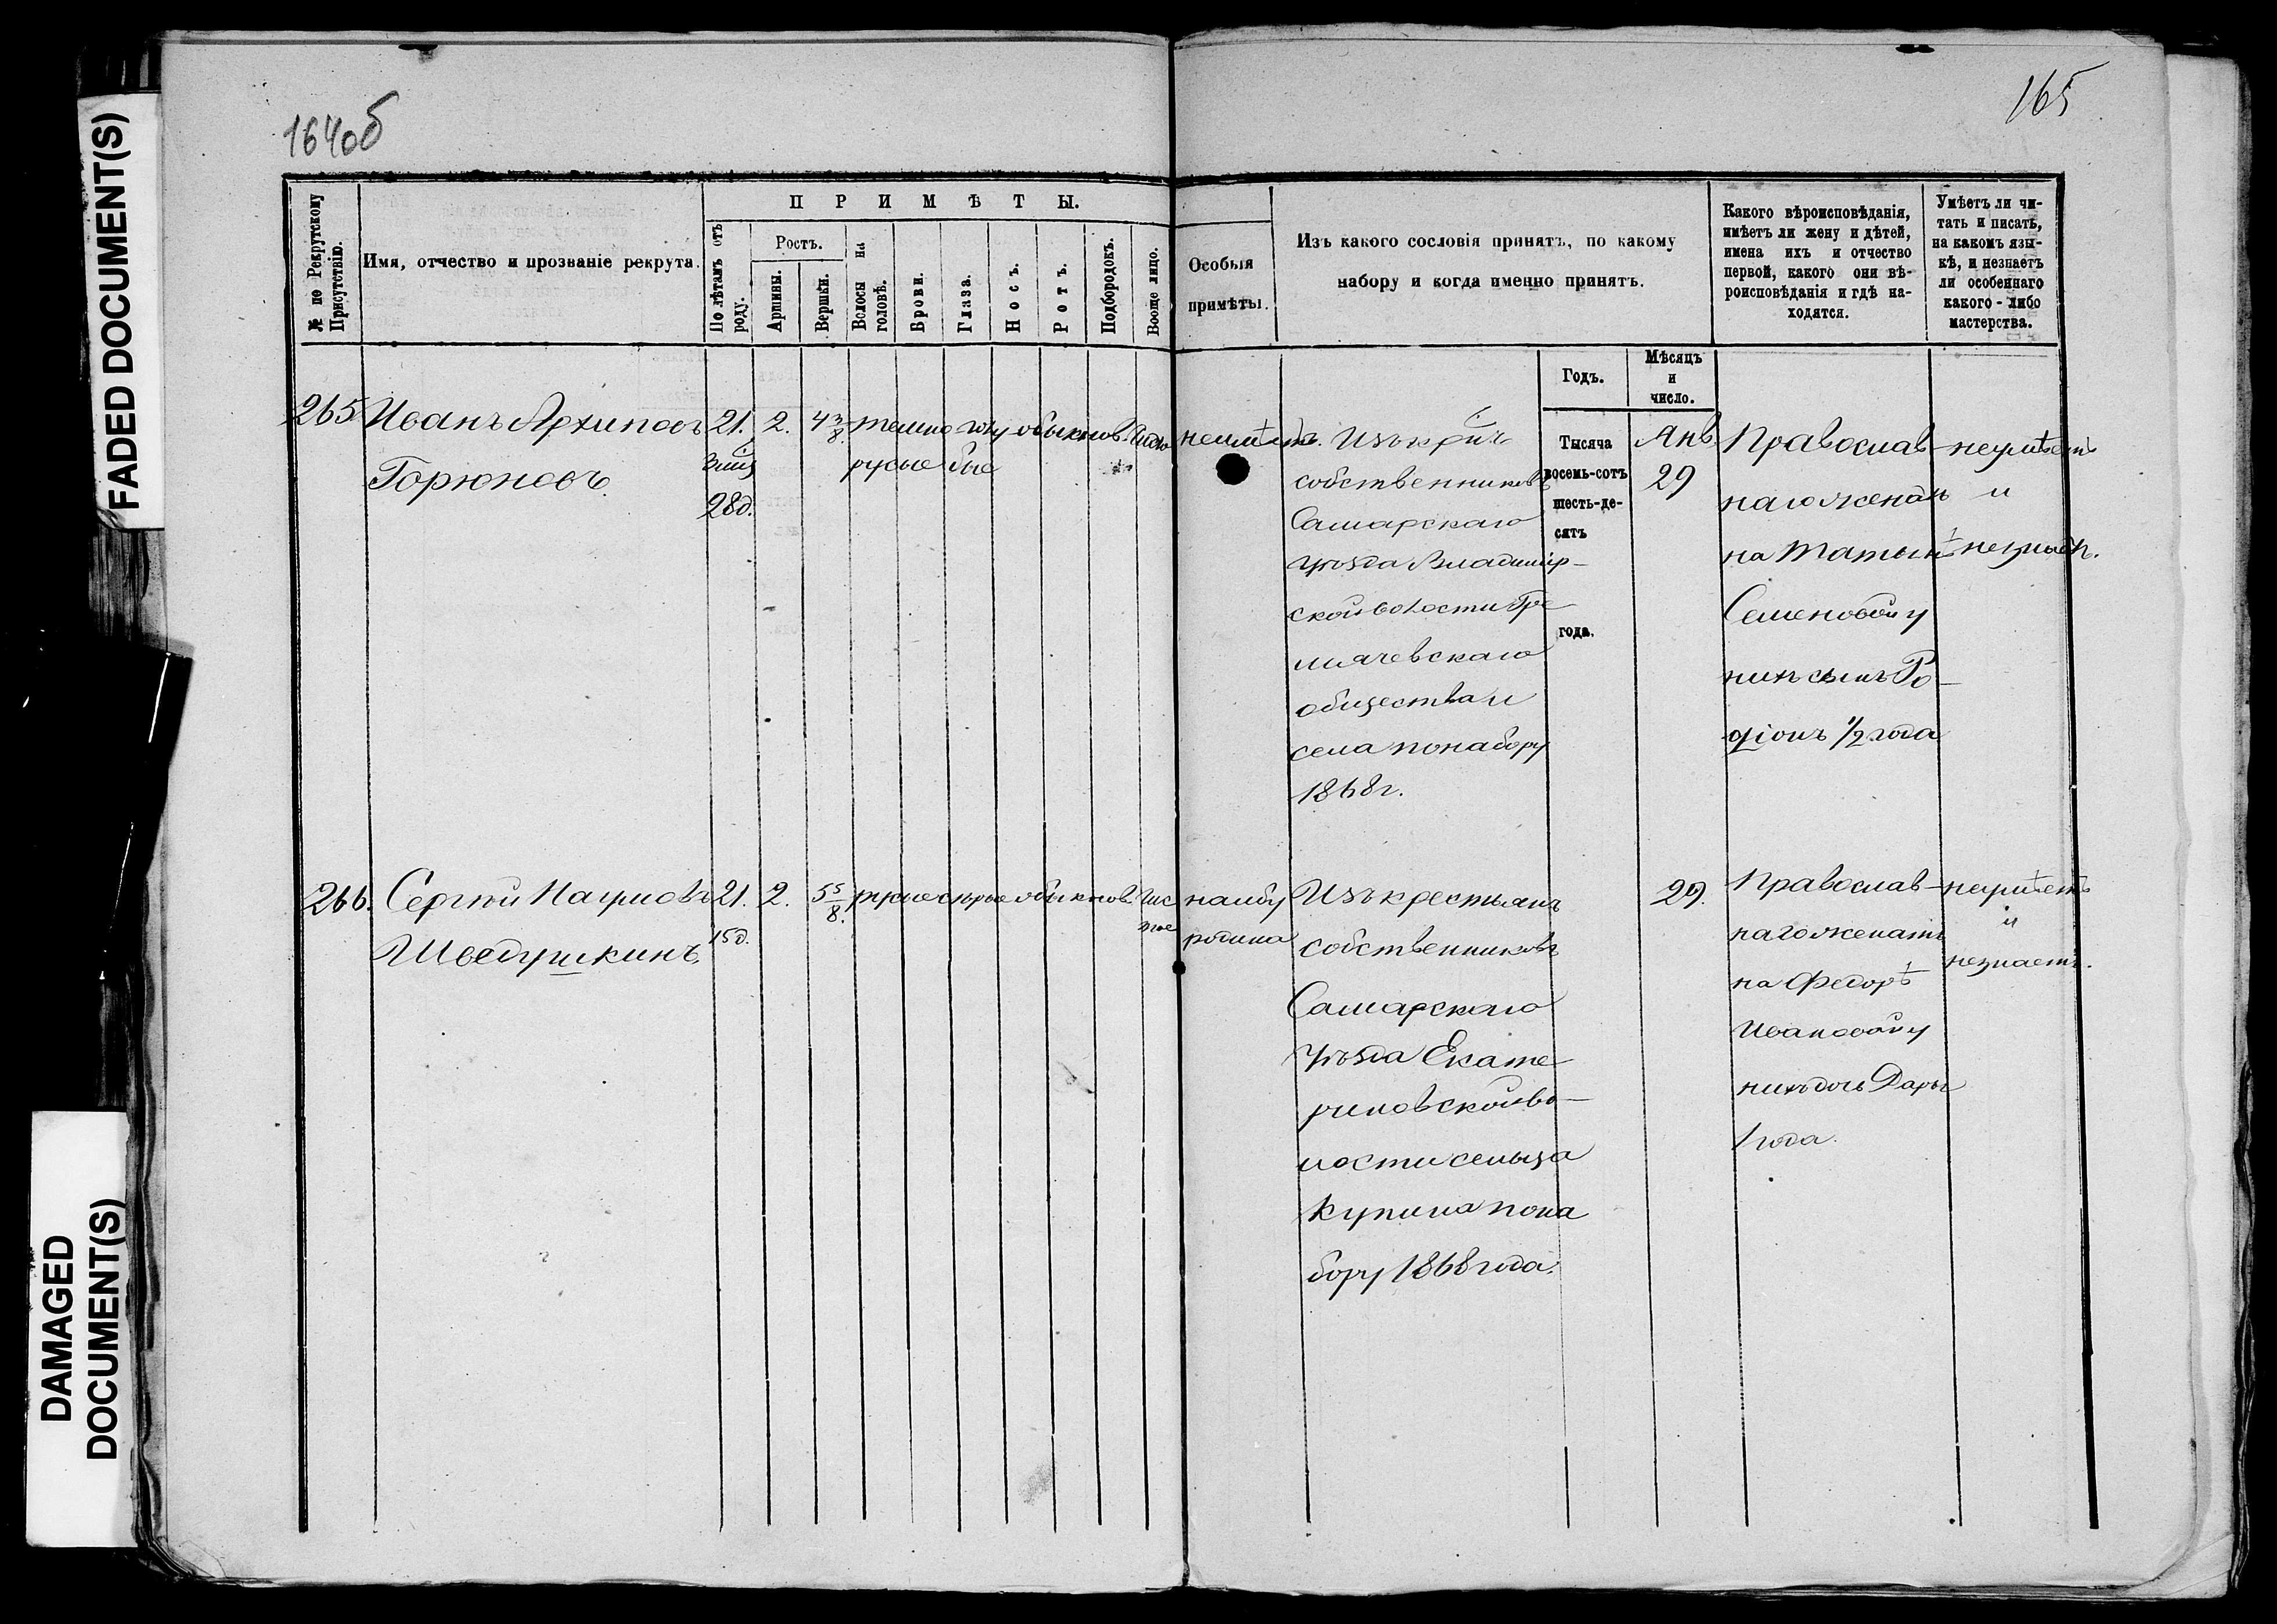 FADED DOCUMENT(S)
DAMAGED
DOCUMENT(S)
164об
165
№ по Рекрутскому
Присутствію.
Имя, отчество и прозваніе рекрута.
ПРИМѢТЫ.
По лѣтамъ отъ
роду.
Ростъ.
Аршины.
Вершки.
Волосы на
головѣ.
Брови.
Глаза.
Носъ.
Ротъ.
Подбородокъ.
Вообще лицо.
Особыя
примѣты.
Изъ какого сословія принятъ, по какому
набору и когда именно принятъ.
Какого вѣроисповѣданія,
имѣетъ ли жену и дѣтей,
имена ихъ и отчество
первой, какого они вѣ-
роисповѣданія и гдѣ на-
ходятся.
Умѣетъ ли чи-
тать и писать,
на какомъ язы-
кѣ, и незнаетъ
ли особеннаго
какого-либо
мастерства.
Годъ.
Мѣсяцъ
и
число.
Тысяча
восемь-сотъ
шесть-де-
сятъ
года.
265
Иванъ Архиповъ
Горюновъ
21.
28д.
2.
4 3/8.
темно
русые
голу
бые
обыкнов.
неимѣетъ.
Изъ крст.
собственниковъ
Самарскаго
уѣзда Владимір-
ской волости Гре
мячевскаго
общества и
села по набору
1868г.
Янв
29
Православ-
наго женатъ
на Татьянѣ
Семеновой у
нихъ сынъ Ро-
діонъ 1/2 года
неумѣетъ
и
незнаетъ.
266.
Сергѣй Наумовъ
Шведушкинъ
21.
15д.
2.
5 5/8.
русые
сѣрые
обыкнов.
чис
тое
на лбу
родина
Изъ крестьянъ
собственниковъ
Самарскаго
уѣзда Екате
риновской во-
лости сельца
Купина по на
бору 1868 года.
29.
Православ-
наго женатъ
на Федорѣ
Ивановой у
нихъ дочь Дарья
1 года.
неумѣетъ
и
незнаетъ.